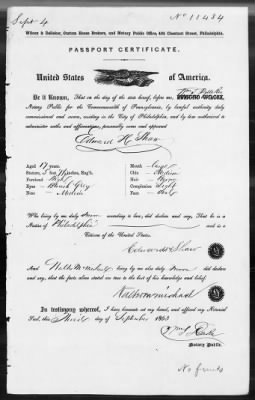 Sept 4. No 11484
Wilcox & Delleker, Custom House Brokers, and Notary Public Office, 405 Chestnut Street, Philadelphia.
PASSPORT CERTIFICATE.
United States of America.
Be it Known, That on the day of the date hereof, before me,
Notary Public for the Commonwealth of Pennsylvania, by lawful authority duly
commissioned and sworn, residing in the City of Philadelphia, and by law authorized to
administer oaths and affirmations, personally came and appeared
Edward H. Shaw
Aged 17 years. Mouth large
Stature, 5 feet inches, Eng. Chin Medium
Forehead High Hair
Eyes Grey Complexion Light
Nose Medium Face Oval
Who being by me duly Sworn according to law, did declare and say, That he is a
Native of Philadelphia
Citizen of the United States.
Edward H Shaw
And being by me also duly Sworn did declare
and say, that the facts above stated are true to the best of his knowledge and belief.
In testimony whereof, I have hereunto set my hand, and affixed my Notarial
Seal, this Third day of September 1863
Notary Public.
No